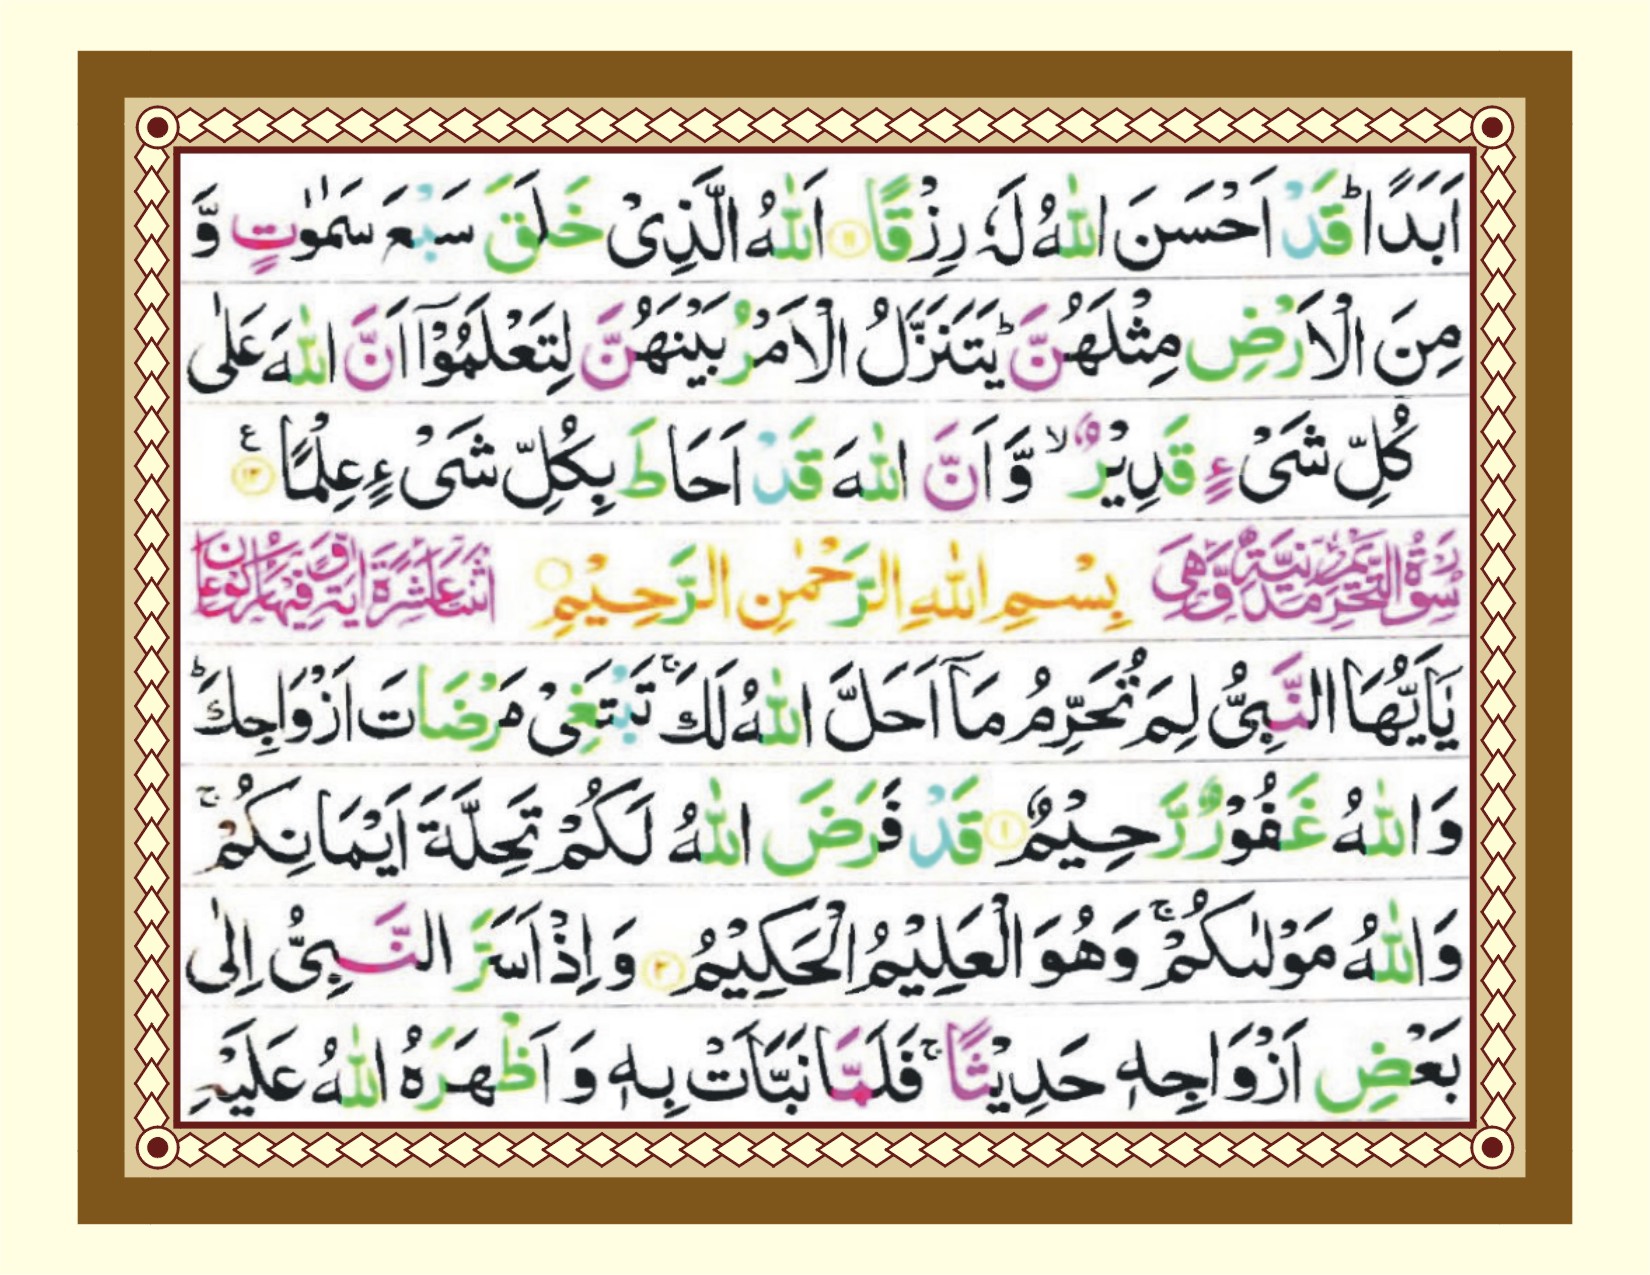 اَبَدًا ؕ قَدْ اَحْسَنَ اللّٰهُ لَهٗ رِزْقًا ۝۱۱ اَللّٰهُ الَّذِیْ خَلَقَ سَبْعَ سَمٰوٰتٍ وَّ
مِنَ الْاَرْضِ مِثْلَهُنَّ ؕ یَتَنَزَّلُ الْاَمْرُ بَیْنَهُنَّ لِتَعْلَمُوْۤا اَنَّ اللّٰهَ عَلٰی
كُلِّ شَیْءٍ قَدِیْرٌ ۙ وَّ اَنَّ اللّٰهَ قَدْ اَحَاطَ بِكُلِّ شَیْءٍ عِلْمًا ۝۱۲ ع
سُوْرَةُ التَّحْرِیْمِ مَدَنِیَّةٌ وَّهِیَ بِسْمِ اللّٰهِ الرَّحْمٰنِ الرَّحِیْمِ ۝ اثْنَتَا عَشْرَةَ اٰیَةً وَّ فِیْهَا رُكُوْعَانِ
یٰۤاَیُّهَا النَّبِیُّ لِمَ تُحَرِّمُ مَاۤ اَحَلَّ اللّٰهُ لَكَ ۚ تَبْتَغِیْ مَرْضَاتَ اَزْوَاجِكَ ؕ
وَ اللّٰهُ غَفُوْرٌ رَّحِیْمٌ ۝۱ قَدْ فَرَضَ اللّٰهُ لَكُمْ تَحِلَّةَ اَیْمَانِكُمْ ۚ
وَ اللّٰهُ مَوْلٰىكُمْ ۚ وَ هُوَ الْعَلِیْمُ الْحَكِیْمُ ۝۲ وَ اِذْ اَسَرَّ النَّبِیُّ اِلٰی
بَعْضِ اَزْوَاجِهٖ حَدِیْثًا ۚ فَلَمَّا نَبَّاَتْ بِهٖ وَ اَظْهَرَهُ اللّٰهُ عَلَیْهِ